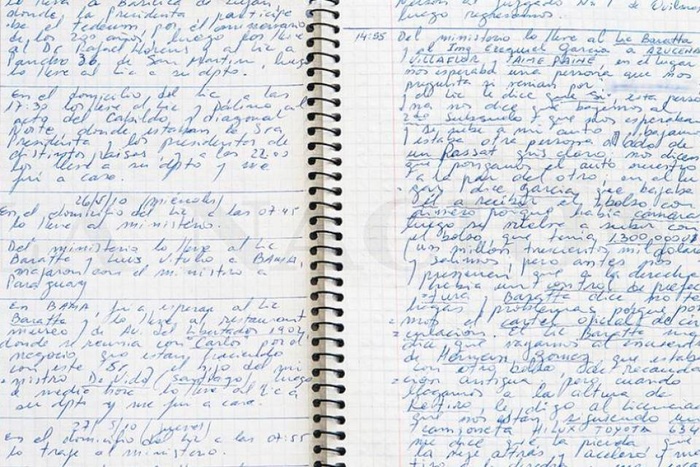 lo llevé a Basílica de Luján
donde la Presidenta participe
de el tedeum por el aniversario
de los 200 años, luego
al Dr. Rafael
36, de San Martín, luego
lo llevé al Lic a su dpto.
En el domicilio del Lic a las
17:30 los llevé al Lic y Palmino al
acto del Cabildo, y diagonal
Norte donde estaban la Sra
Presidenta y los presidentes de
distintos Países, y a las 22:00
los llevé a su dpto y me
fui a casa.
26/5/10 (miércoles)
En el domicilio del Lic a las 07:45
lo llevé al ministerio.
Del ministerio lo llevé al Lic
Baratta y Luis Vitulo a BAMA,
viajaron con el ministro a
Paraguay
En BAMA fui a esperar al Lic
Baratta, lo llevé al restaurant
de Av. del Libertador 1902
donde se reunía con "Carlos" por el
negocio que están haciendo
con este Sr. el hijo del mi
nistro De Vido (Santiago), luego
a media hora lo llevé al Lic a
su dpto y me fui a casa.
27/5/10 (jueves)
En el domicilio del Lic a las 07:55
lo traje al ministerio.
al juzgado Nº 1 de
luego regresamos.
14:55 Del ministerio lo llevé al Lic Baratta
y al Ing Ezequiel García a AZUCENA
VILLAFLOR y AIME PAINE, en el lugar
nos esperaba una persona que nos
preguntó si venían por
al Lic dice esta perso
na nos dice que bajemos al
2do Subsuelo y que nos esperaban
y se sube a mi auto y bajamos
estaba otra persona al lado de
un passat gris claro, nos dicen
que pongamos el auto nuestro
a la par del otro, en el lu
gar dice García que bajaba
él a recibir el bolso con
dinero porque había cámaras
luego se vuelve a subir con
el bolso que tenía 1300.000 U$
(un millón trescientos mil dólares)
y salimos, pero antes nos
que a la derecha
había un control de prefec
tura Baratta dice no te
hagas problemas porque por
el cartel oficial de cir
culación. Lic Baratta me
dice que vayamos al encuentro
de Hernan Gomez que estaba
con otro bolso de recauda
ción antigua, pero cuando
llegamos a la altura de
Retiro le digo al Licenciado
que nos están siguiendo una
camioneta HILUX TOYOTA
me dice que la pierda que
la deje atrás y acelero y me